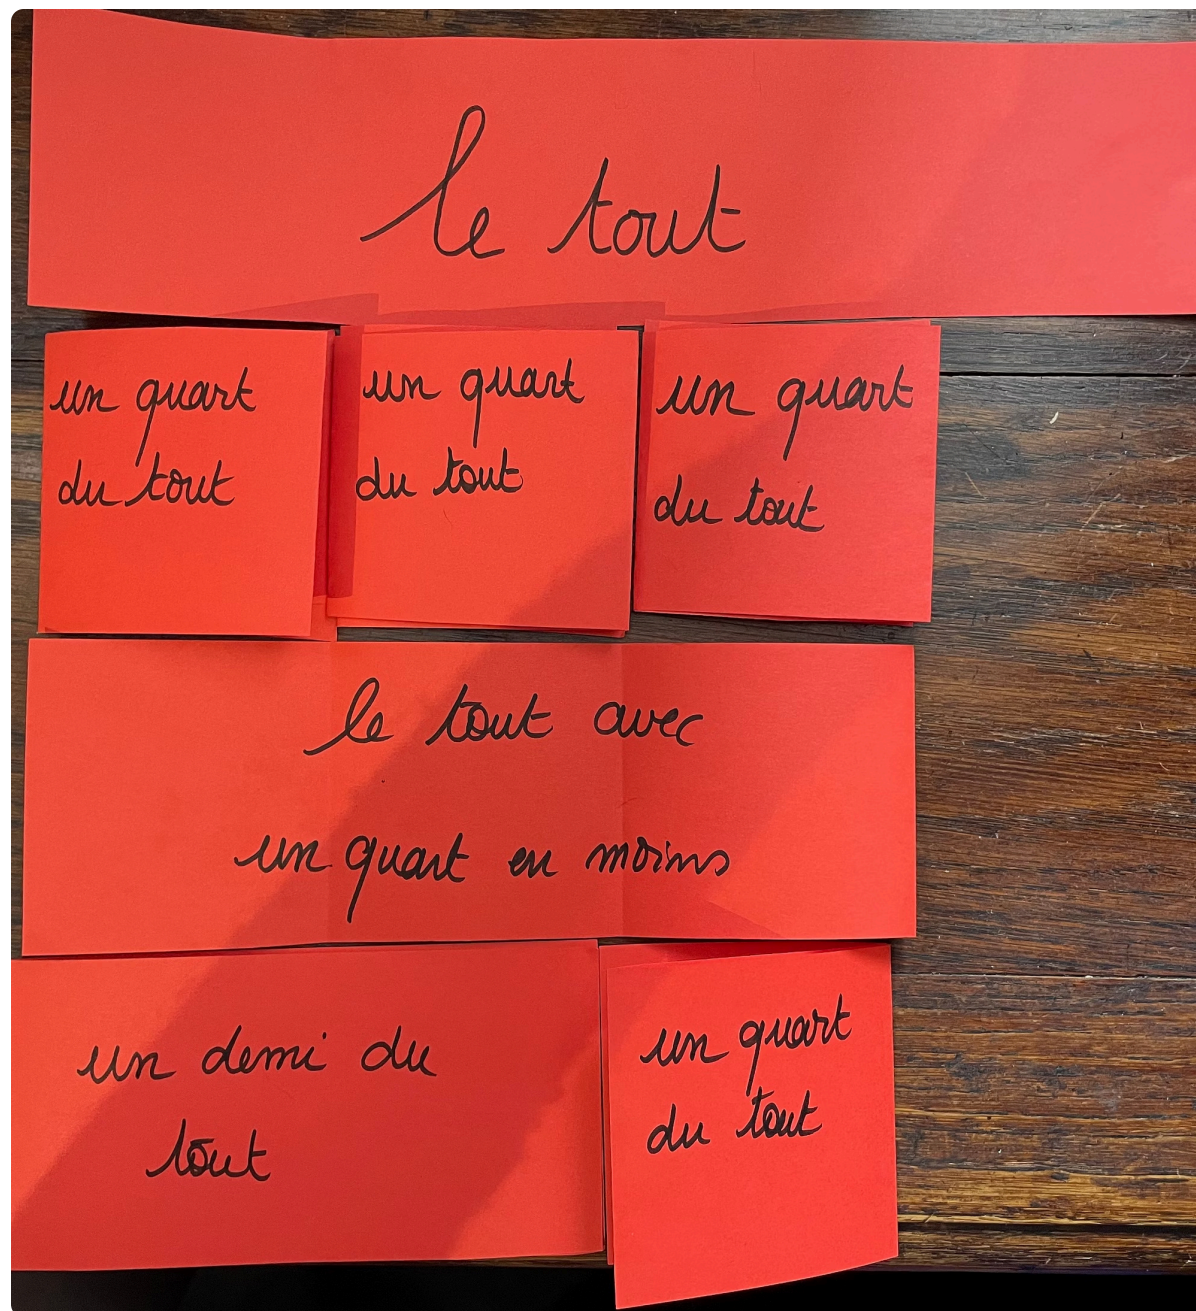 le tout
un quart
du tout
un quart
du tout
un quart
du tout
le tout avec
un quart en moins
un demi du
tout
un quart
du tout